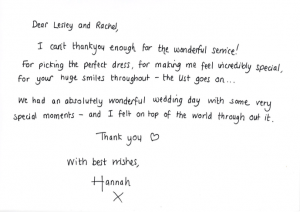 Dear Lesley and Rachel,
I can't thankyou enough for the wonderful service!
For picking the perfect dress, for making me feel incredibly special,
For your huge smiles throughout - the list goes on....
We had an absolutely wonderful wedding day with some very
special moments - and I felt on top of the world through out it.
Thank you ♡
With best wishes,
Hannah
X